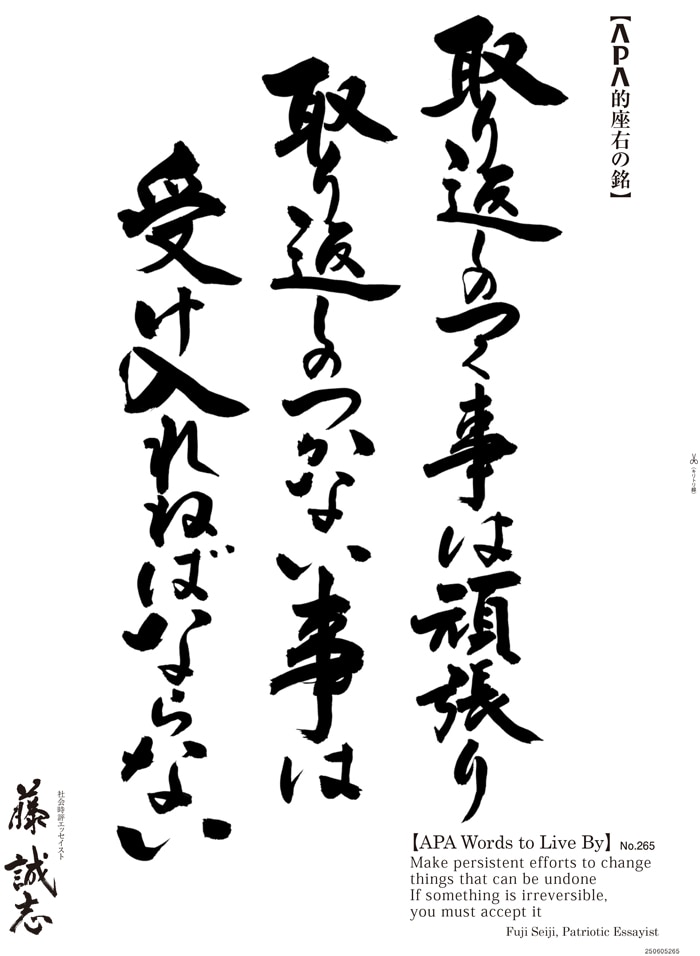 【APA的座右の銘】
取り返しのつく事は頑張り
取り返しのつかない事は
受け入れねばならない
社会時評エッセイスト
藤誠志
【APA Words to Live By】 No.265
Make persistent efforts to change
things that can be undone
If something is irreversible,
you must accept it
Fuji Seiji, Patriotic Essayist
250605265
(キリトリ線)